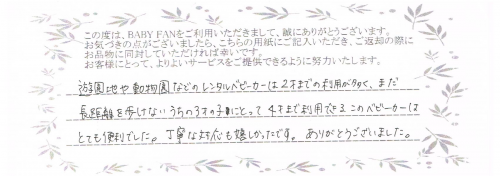 この度は、BABY FANをご利用いただきまして、誠にありがとうございます。
お気づきの点がございましたら、こちらの用紙にご記入いただき、ご返却の際に
お品物に同封していただければ幸いです。
お客様にとって、よりよいサービスをご提供できるように努力いたします。
遊園地や動物園などのレンタルベビーカーは2才までの利用が多く、まだ
長距離を歩けないうちの3才の子にとって4才まで利用できるこのベビーカーは
とても便利でした。丁寧な対応も嬉しかったです。ありがとうございました。